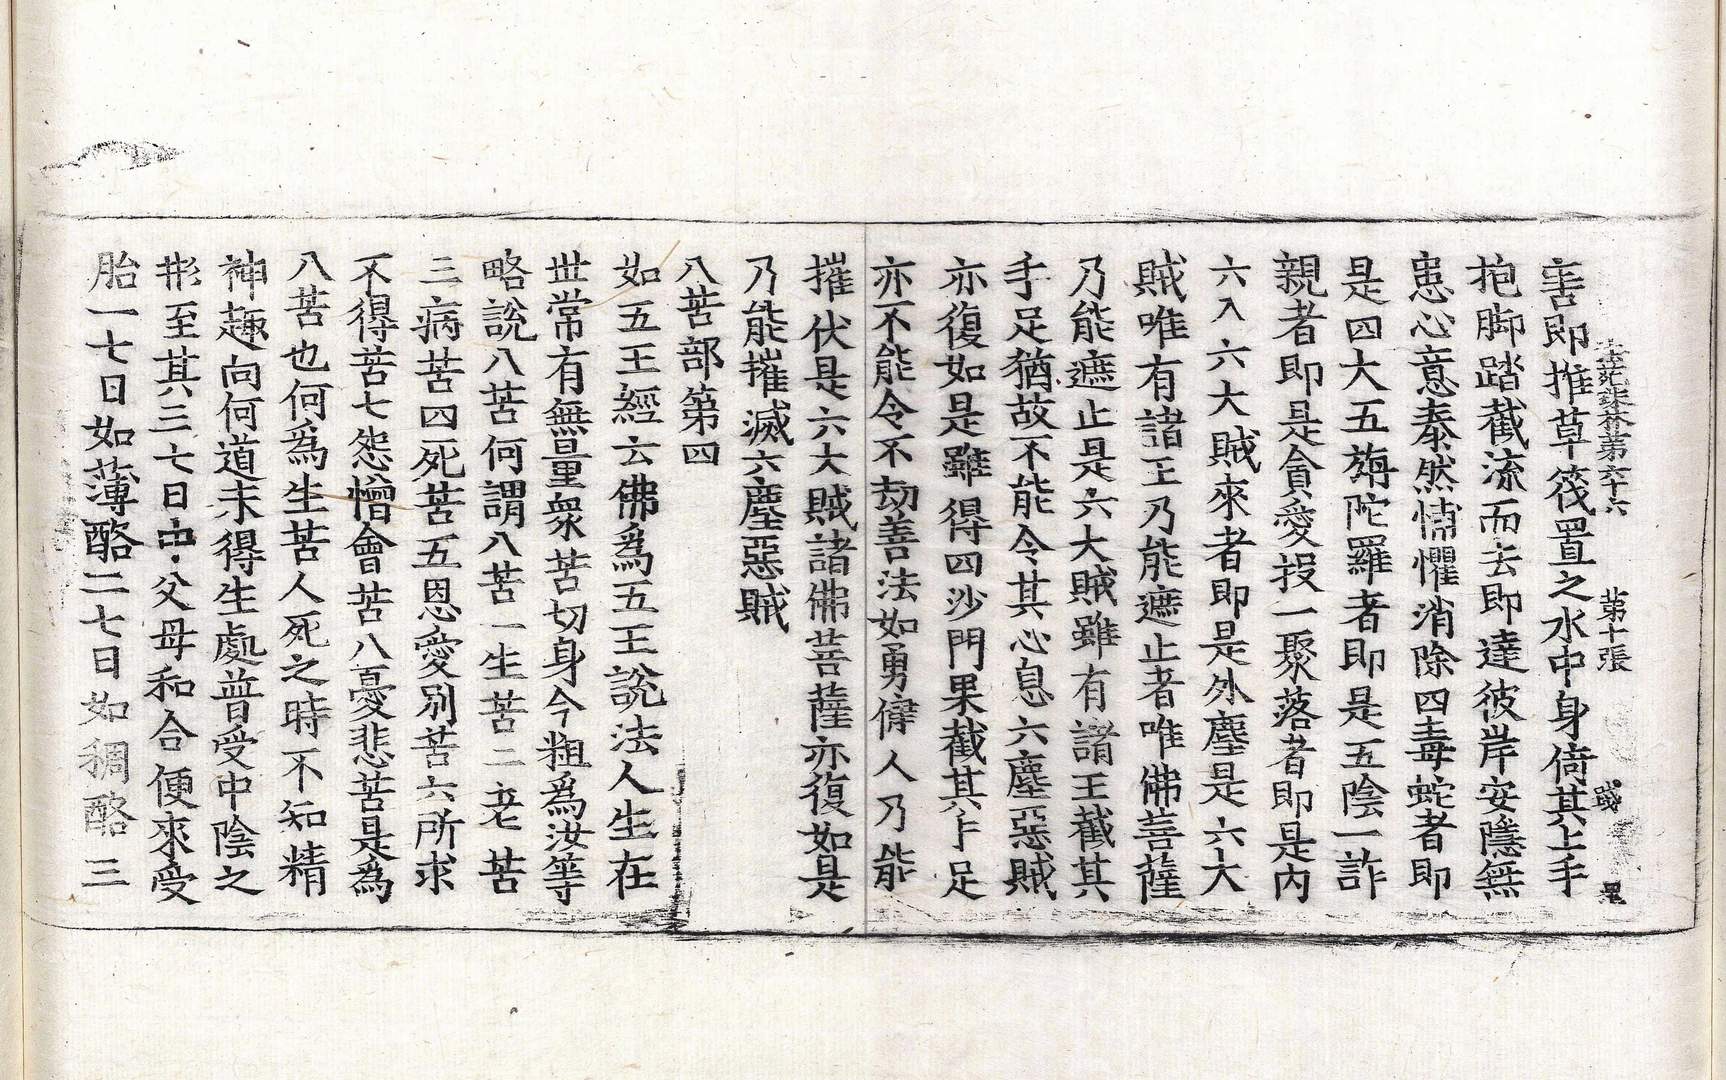 法苑珠林第六十六 第十張
害即推草筏置之水中身倚其上手
抱脚踏截流而去即達彼岸安隱無
患心意泰然怖懼消除四毒蛇者即
是四大五旃陀羅者即是五陰一詐
親者即是貪愛投一聚落者即是內
六入六大賊來者即是外塵是六大
賊唯有諸王乃能遮止者唯佛菩薩
乃能遮止是六大賊雖有諸王截其
手足猶故不能令其心息六塵惡賊
亦復如是雖得四沙門果截其手足
亦不能令不劫善法如勇偉人乃能
摧伏是六大賊諸佛菩薩亦復如是
乃能摧滅六塵惡賊
八苦部第四
如五王經云佛爲五王說法人生在
世常有無量衆苦切身今粗爲汝等
略說八苦何謂八苦一生苦二老苦
三病苦四死苦五恩愛別苦六所求
不得苦七怨憎會苦八憂悲苦是為
八苦也何為生苦人死之時不知精
神趣向何道未得生處普受中陰之
形至其三七日中父母和合便來受
胎一七日如薄酪二七日如稠酪三